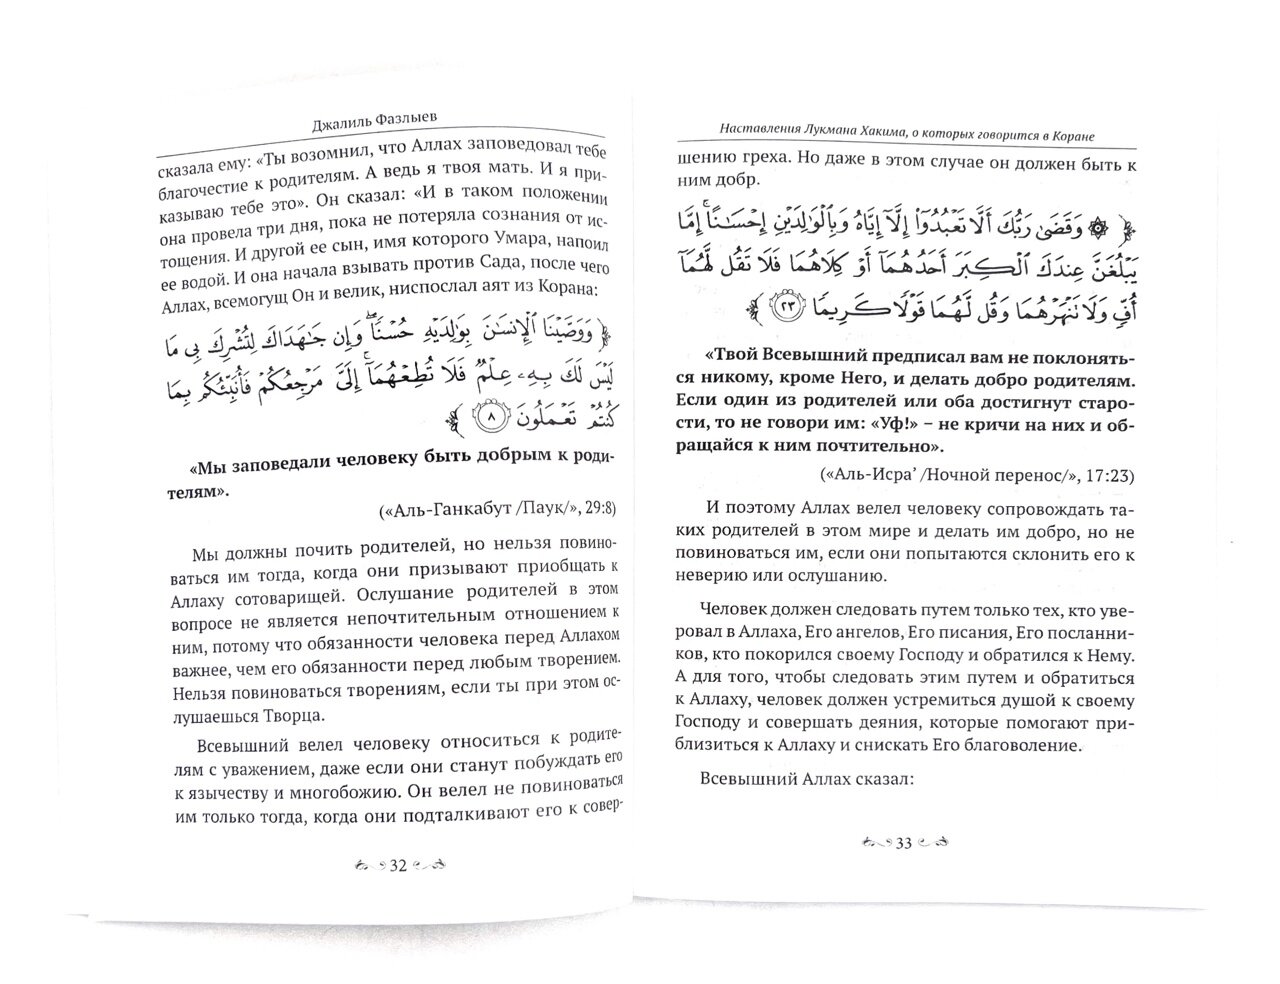 Джалиль Фазлыев
сказала ему: «Ты возомнил, что Аллах заповедовал тебе
благочестие к родителям. А ведь я твоя мать. И я при-
казываю тебе это». Он сказал: «И в таком положении
она провела три дня, пока не потеряла сознания от ис-
тощения. И другой ее сын, имя которого Умара, напоил
ее водой. И она начала взывать против Сада, после чего
Аллах, всемогущ Он и велик, ниспослал аят из Корана:
﴿ وَوَصَّيْنَا ٱلْإِنسَٰنَ بِوَٰلِدَيْهِ حُسْنًا ۖ وَإِن جَٰهَدَاكَ لِتُشْرِكَ بِى مَا
لَيْسَ لَكَ بِهِۦ عِلْمٌ فَلَا تُطِعْهُمَآ ۚ إِلَىَّ مَرْجِعُكُمْ فَأُنَبِّئُكُم بِمَا
كُنتُمْ تَعْمَلُونَ ٨ ﴾
«Мы заповедали человеку быть добрым к роди-
телям».
(«Аль-Ганкабут /Паук/», 29:8)
Мы должны почить родителей, но нельзя повино-
ваться им тогда, когда они призывают приобщать к
Аллаху сотоварищей. Ослушание родителей в этом
вопросе не является непочтительным отношением к
ним, потому что обязанности человека перед Аллахом
важнее, чем его обязанности перед любым творением.
Нельзя повиноваться творениям, если ты при этом ос-
лушаешься Творца.
Всевышний велел человеку относиться к родите-
лям с уважением, даже если они станут побуждать его
к язычеству и многобожию. Он велел не повиноваться
им только тогда, когда они подталкивают его к совер-
32
Наставления Лукмана Хакима, о которых говорится в Коране
шению греха. Но даже в этом случае он должен быть к
ним добр.
﴿ ۞ وَقَضَىٰ رَبُّكَ أَلَّا تَعْبُدُوٓا۟ إِلَّآ إِيَّاهُ وَبِٱلْوَٰلِدَيْنِ إِحْسَٰنًا ۚ إِمَّا
يَبْلُغَنَّ عِندَكَ ٱلْكِبَرَ أَحَدُهُمَآ أَوْ كِلَاهُمَا فَلَا تَقُل لَّهُمَآ
أُفٍّ وَلَا تَنْهَرْهُمَا وَقُل لَّهُمَا قَوْلًا كَرِيمًا ٢٣ ﴾
«Твой Всевышний предписал вам не поклонять-
ся никому, кроме Него, и делать добро родителям.
Если один из родителей или оба достигнут старо-
сти, то не говори им: «Уф!» – не кричи на них и об-
ращайся к ним почтительно».
(«Аль-Исра’ /Ночной перенос/», 17:23)
И поэтому Аллах велел человеку сопровождать та-
ких родителей в этом мире и делать им добро, но не
повиноваться им, если они попытаются склонить его к
неверию или ослушанию.
Человек должен следовать путем только тех, кто уве-
ровал в Аллаха, Его ангелов, Его писания, Его посланни-
ков, кто покорился своему Господу и обратился к Нему.
А для того, чтобы следовать этим путем и обратиться
к Аллаху, человек должен устремиться душой к своему
Господу и совершать деяния, которые помогают при-
близиться к Аллаху и снискать Его благоволение.
Всевышний Аллах сказал:
33